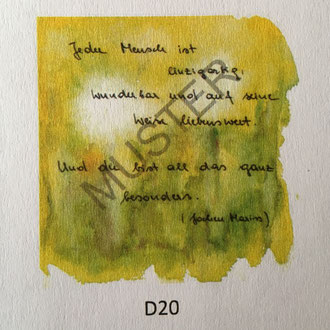 Jeder Mensch ist
einzigartig,
wunderbar und auf seine
Weise liebenswert.
Und du bist all das ganz
besonders.
(Jochen Mariss)
MUSTER
D20